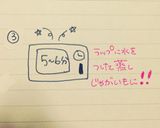 ③
5~6分
ラップに水を
つけて蒸し
じゃがいもに!!